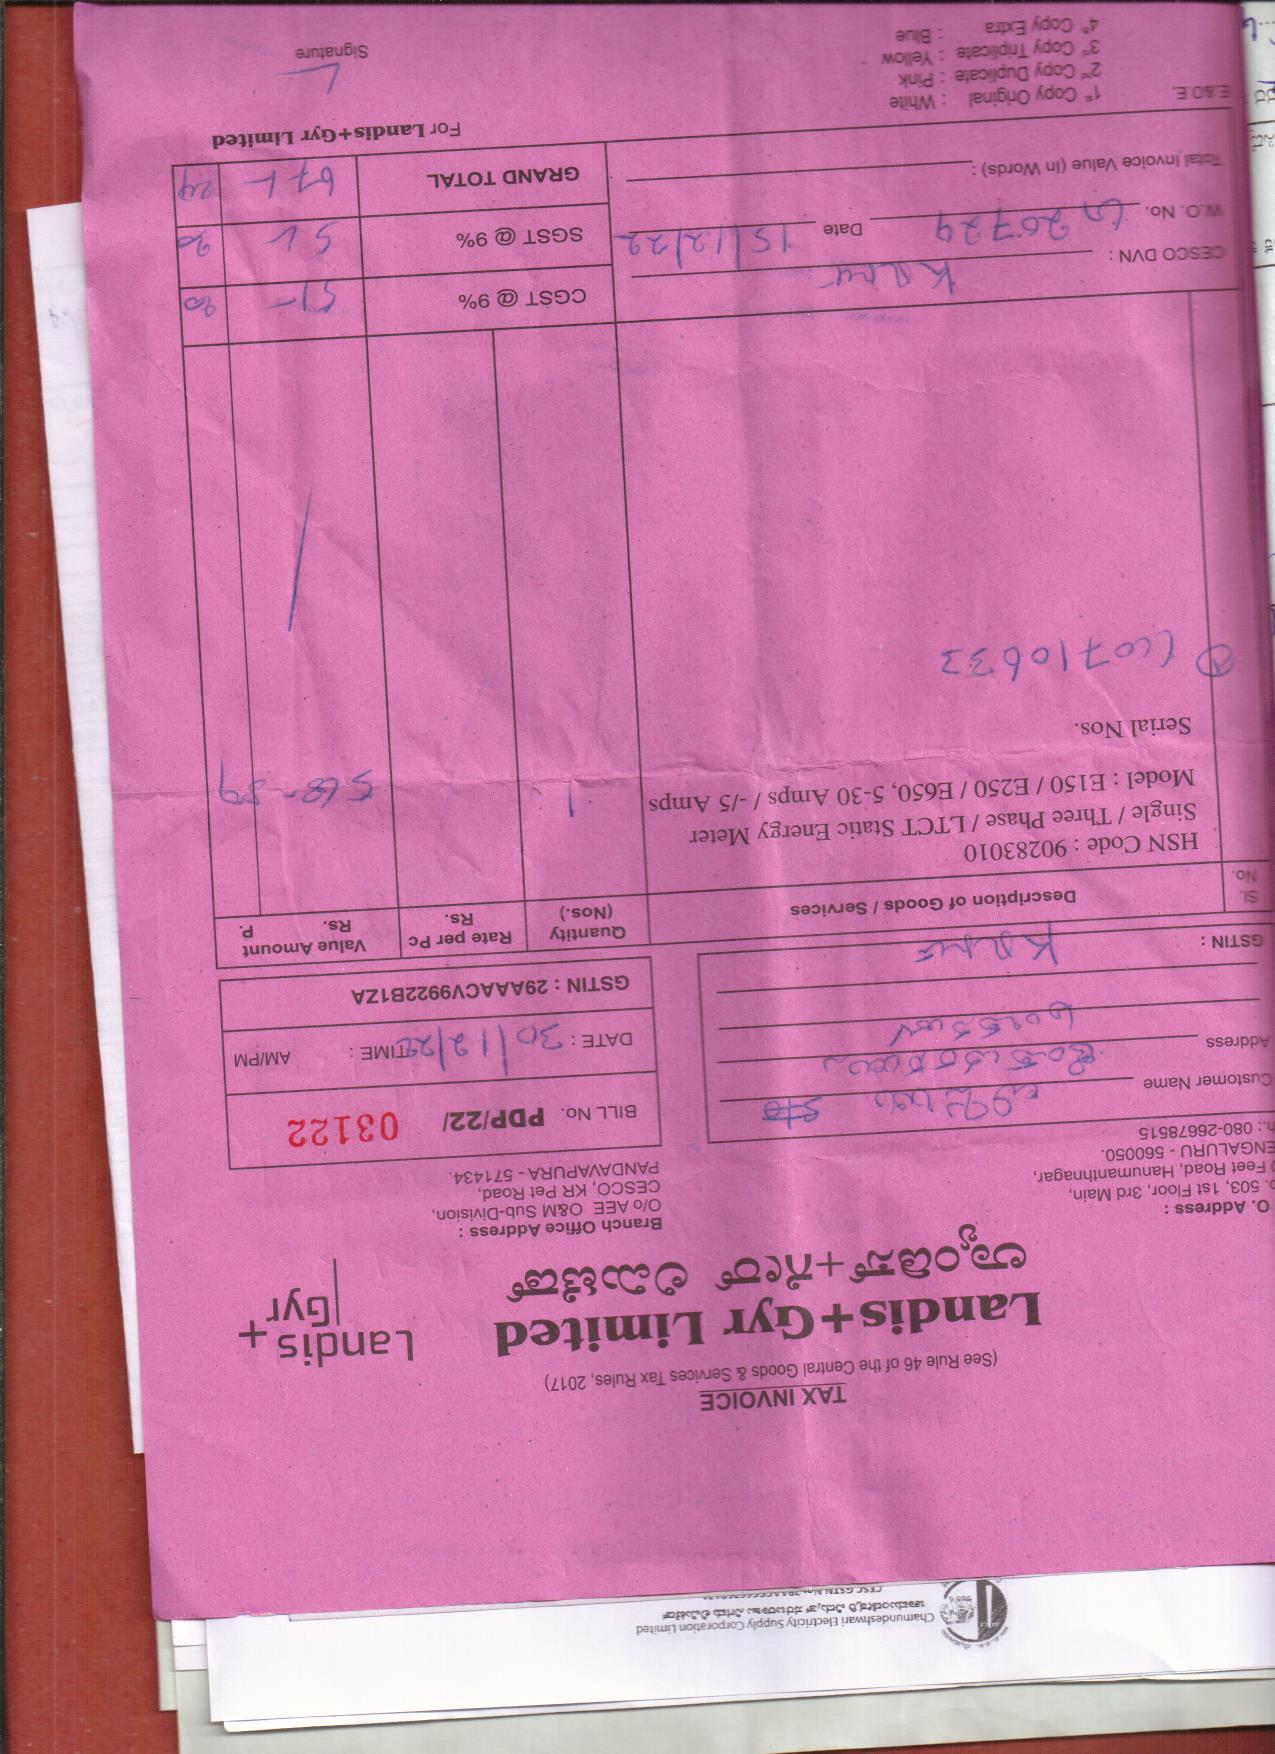 TAX INVOICE
(See Rule 46 of the Central Goods & Services Tax Rules, 2017)
Landis+Gyr Limited
ಲ್ಯಾಂಡಿಸ್+ಗೇರ್ ಲಿಮಿಟೆಡ್
Landis+
Gyr
O. Address :
503, 1st Floor, 3rd Main,
Feet Road, Hanumanthnagar,
ENGALURU - 560050.
h.: 080-26678515
Branch Office Address :
O/o AEE O&M Sub-Division,
CESCO, KR Pet Road,
PANDAVAPURA - 571434.
Customer Name
Address
GSTIN :
BILL No. PDP/22/ 03122
DATE : 30/12/22 TIME : AM/PM
GSTIN : 29AAACV9922B1ZA
Sl. No.
Description of Goods / Services
Quantity (Nos.)
Rate per Pc Rs.
Value Amount Rs. P.
HSN Code : 90283010
Single / Three Phase / LTCT Static Energy Meter
Model : E150 / E250 / E650, 5-30 Amps / -/5 Amps
1 568-89
Serial Nos.
CESCO DVN :
W.O. No. 20729 Date 15/12/22
Total Invoice Value (In Words) :
CGST @ 9% 51- 20
SGST @ 9% 51 20
GRAND TOTAL 671-
E.&O.E.
1st Copy Original : White
2nd Copy Duplicate : Pink
3rd Copy Triplicate : Yellow
4th Copy Extra : Blue
For Landis+Gyr Limited
Signature
Chamundeshwari Electricity Supply Corporation Limited